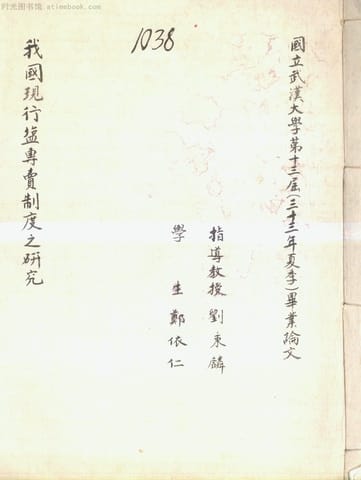 时光图书馆 - atimebook.com
1038
國立武漢大學第十三屆(三十三年夏季)畢業論文
指導教授劉秉麟
學生鄭依仁
我國現行盐專賣制度之研究